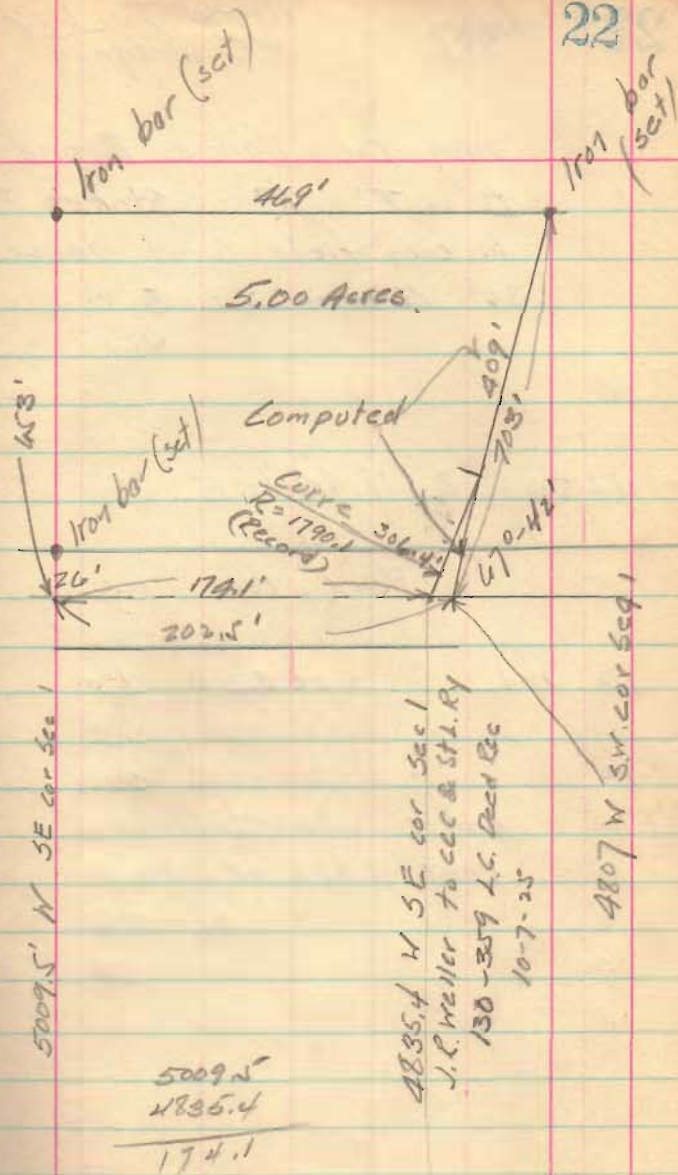 22
Iron bar (set)
Iron bar
(set)
469'
5.00 Acres.
653'
Computed
409'
703'
Iron bar (set)
Curve
R=1790.1
(Record)
306.4'
67°-42'
26'
174.1'
202.5'
5009.5' W SE cor Sec 1
4835.4 W SE cor Sec 1
J.R. Weller to CCC & StL. Ry
130-359 L.C. Deed Rec
10-7-25
4807 W S.W. cor Sec 1
5009.5
4835.4
174.1